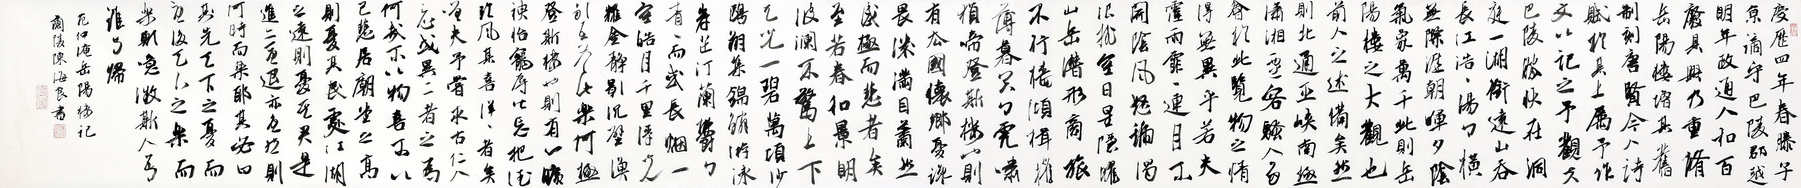 慶歷四年春滕子
京謫守巴陵郡越
明年政通人和百
廢具興乃重脩
岳陽樓增其舊
制刻唐賢今人詩
賦於其上屬予作
文以記之予觀夫
巴陵勝狀在洞
庭一湖銜遠山吞
長江浩浩湯湯橫
無際涯朝暉夕陰
氣象萬千此則岳
陽樓之大觀也
前人之述備矣然
則北通巫峽南極
瀟湘遷客騷人多
會於此覽物之情
得無異乎若夫
霪雨霏霏連月不
開陰風怒號濁
浪排空日星隱曜
山岳潛形商旅
不行檣傾楫摧
薄暮冥冥虎嘯
猿啼登斯樓也則
有去國懷鄉憂讒
畏譏滿目蕭然
感極而悲者矣
至若春和景明
波瀾不驚上下
天光一碧萬頃沙
鷗翔集錦鱗游泳
岸芷汀蘭鬱鬱
青青而或長烟一
空皓月千里浮光
耀金靜影沉璧漁
歌互答此樂何極
登斯樓也則有心曠
神怡寵辱皆忘把酒
臨風其喜洋洋者矣
嗟夫予嘗求古仁人
之心或異二者之為
何哉不以物喜不以
己悲居廟堂之高
則憂其民處江湖
之遠則憂其君是
進亦憂退亦憂然則
何時而樂耶其必曰
其先天下之憂而
憂後天下之樂而
樂歟噫微斯人吾
誰與歸
范仲淹岳陽樓記
蘭陵陳海良書